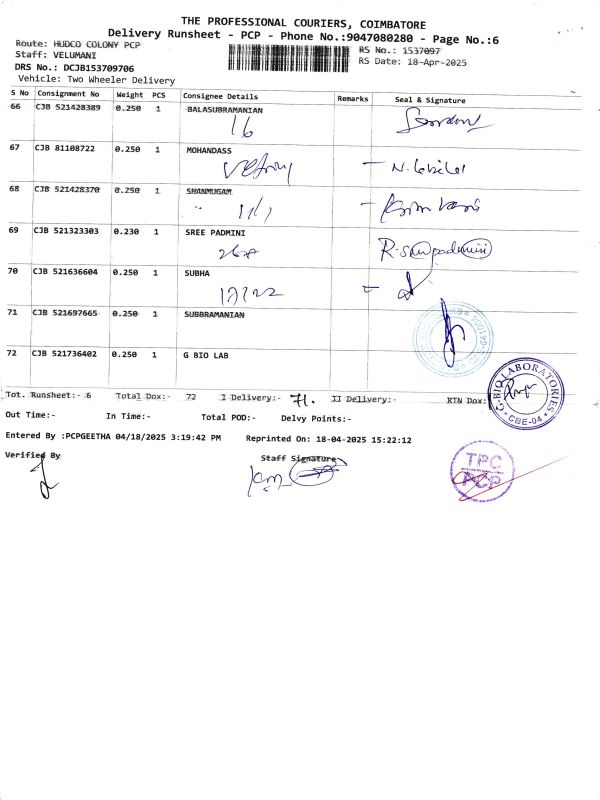 THE PROFESSIONAL COURIERS, COIMBATORE
Delivery Runsheet - PCP - Phone No.:9047080280 - Page No.:6
Route: HUDCO COLONY PCP
RS No.: 1537097
Staff: VELUMANI
RS Date: 18-Apr-2025
DRS No.: DCJB153709706
Vehicle: Two Wheeler Delivery
S No Consignment No Weight PCS Consignee Details Remarks Seal & Signature
66 CJB 521428389 0.250 1 BALASUBRAMANIAN
16
67 CJB 81108722 0.250 1 MOHANDASS
68 CJB 521428370 0.250 1 SHANMUGAM
69 CJB 521323303 0.230 1 SREE PADMINI
70 CJB 521636604 0.250 1 SUBHA
71 CJB 521697665 0.250 1 SUBBRAMANIAN
72 CJB 521736402 0.250 1 G BIO LAB
G.BIO LABORATORIES
CBE-04
Tot. Runsheet:- 6 Total Dox:- 72 I Delivery:- 71. II Delivery:- RTN Dox:
Out Time:- In Time:- Total POD:- Delvy Points:-
Entered By :PCPGEETHA 04/18/2025 3:19:42 PM Reprinted On: 18-04-2025 15:22:12
Verified By Staff Signature
TPC
PCP